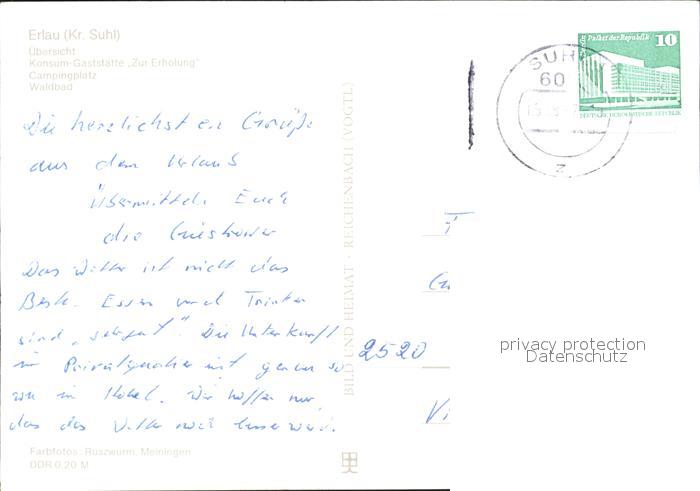 Erlau (Kr. Suhl)
Übersicht
Konsum-Gaststätte „Zur Erholung"
Campingplatz
Waldbad
Die herzlichsten Grüße
aus dem Urlaub
Übermitteln Euch
die
Das Wetter ist nicht das
Beste. Essen und Trinken
sind „sehr gut". Die Unterkunft
im Privatquartier ist genau so
wie im Hotel. Wir hoffen nur,
das das Wetter noch besser wird.
Farbfotos: Ruszwurm, Meiningen
DDR 0,20 M
BILD UND HEIMAT · REICHENBACH (VOGTL)
SUHL
60
z
Berlin Palast der Republik 10
DEUTSCHE DEMOKRATISCHE REPUBLIK
2520
privacy protection
Datenschutz